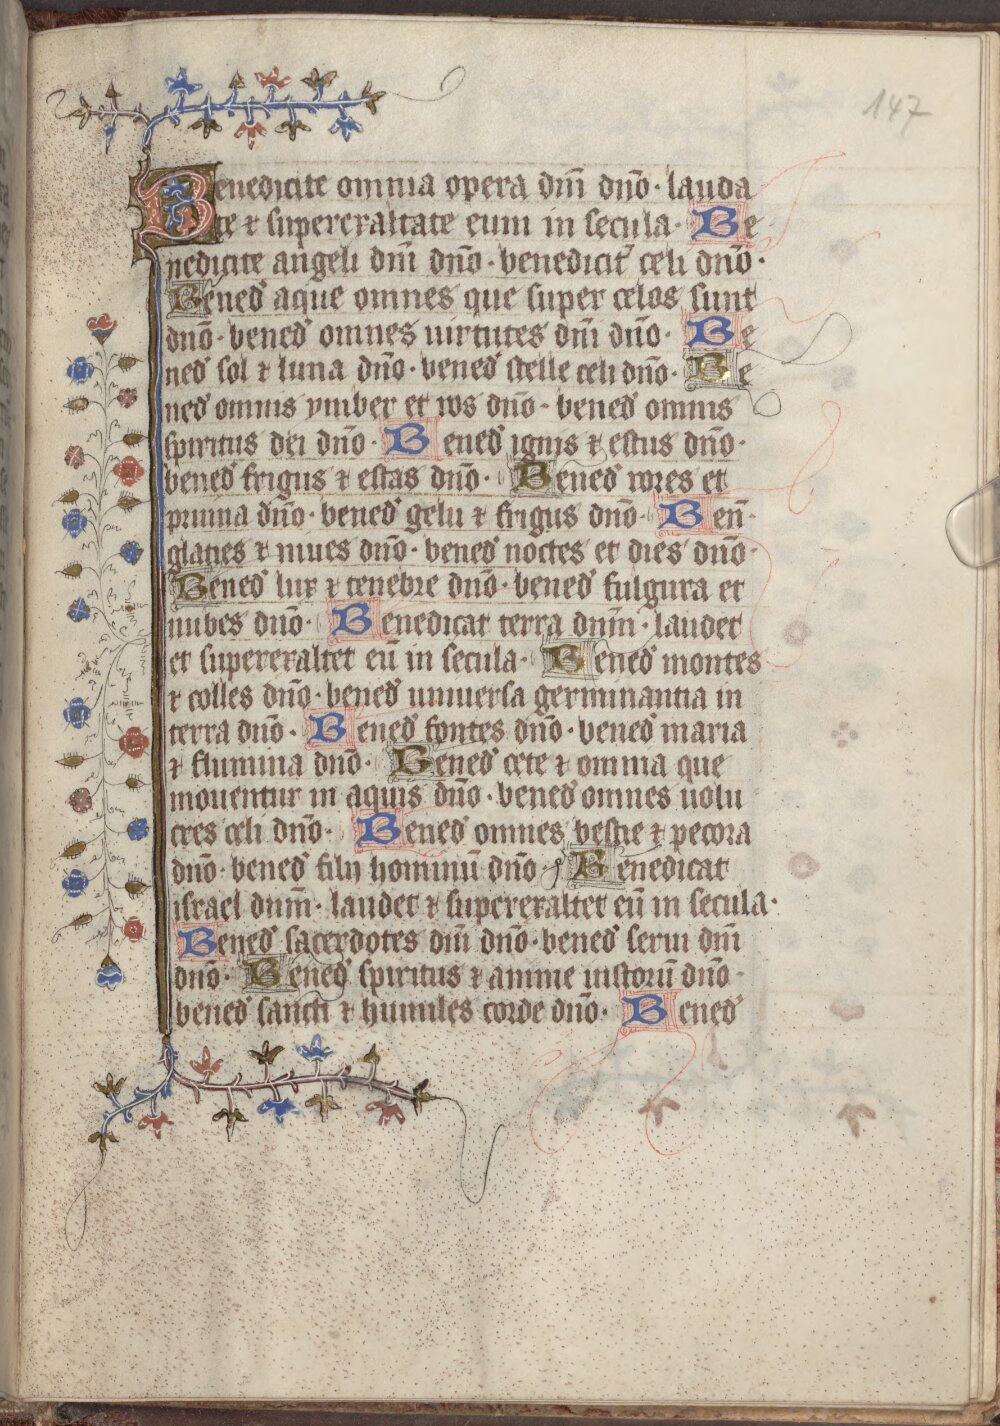 147
Benedicite omnia opera dm̄i dn̄o · lauda
te ⁊ superexaltate eum in secula · Be
nedicite angeli dm̄i dn̄o · benedicit᷑ celi dn̄o ·
Bened̛ aque omnes que super celos sunt
dn̄o · bened̛ omnes uirtutes dm̄i dn̄o · Be
ned̛ sol ⁊ luna dn̄o · bened̛ stelle celi dn̄o · Be
ned̛ omnis ymber et ros dn̄o · bened̛ omnis
spiritus dei dn̄o · Bened̛ ignis ⁊ estus dn̄o ·
bened̛ frigus ⁊ estas dn̄o · Bened̛ rores et
pruina dn̄o · bened̛ gelu ⁊ frigus dn̄o · Ben̄ ·
glacies ⁊ niues dn̄o · bened̛ noctes et dies dn̄o ·
Bened̛ lux ⁊ tenebre dn̄o · bened̛ fulgura et
nubes dn̄o · Benedicat terra dn̄m · laudet
et superexaltet eū in secula · Bened̛ montes
⁊ colles dn̄o · bened̛ uniuersa germinantia in
terra dn̄o · Bened̛ fontes dn̄o · bened̛ maria
⁊ flumina dn̄o · Bened̛ cete ⁊ omnia que
mouentur in aquis dn̄o · bened̛ omnes uolu
cres celi dn̄o · Bened̛ omnes bestie ⁊ pecora
dn̄o · bened̛ filij hominū dn̄o · Benedicat
israel dn̄m · laudet ⁊ superexaltet eū in secula ·
Bened̛ sacerdotes dm̄i dn̄o · bened̛ serui dm̄i
dn̄o · Bened̛ spiritus ⁊ anime iustorū dn̄o ·
bened̛ sancti ⁊ humiles corde dn̄o · Bened̛